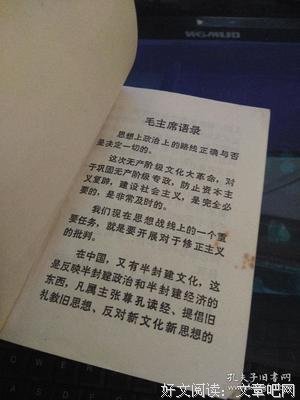 毛主席语录
思想上政治上的路线正确与否
是决定一切的。
这次无产阶级文化大革命，对
于巩固无产阶级专政，防止资本主
义复辟，建设社会主义，是完全必
要的，是非常及时的。
我们现在思想战线上的一个重
要任务，就是要开展对于修正主义
的批判。
在中国，又有半封建文化，这
是反映半封建政治和半封建经济的
东西，凡属主张尊孔读经、提倡旧
礼教旧思想、反对新文化新思想的
孔夫子旧书网
好文阅读：文章吧网